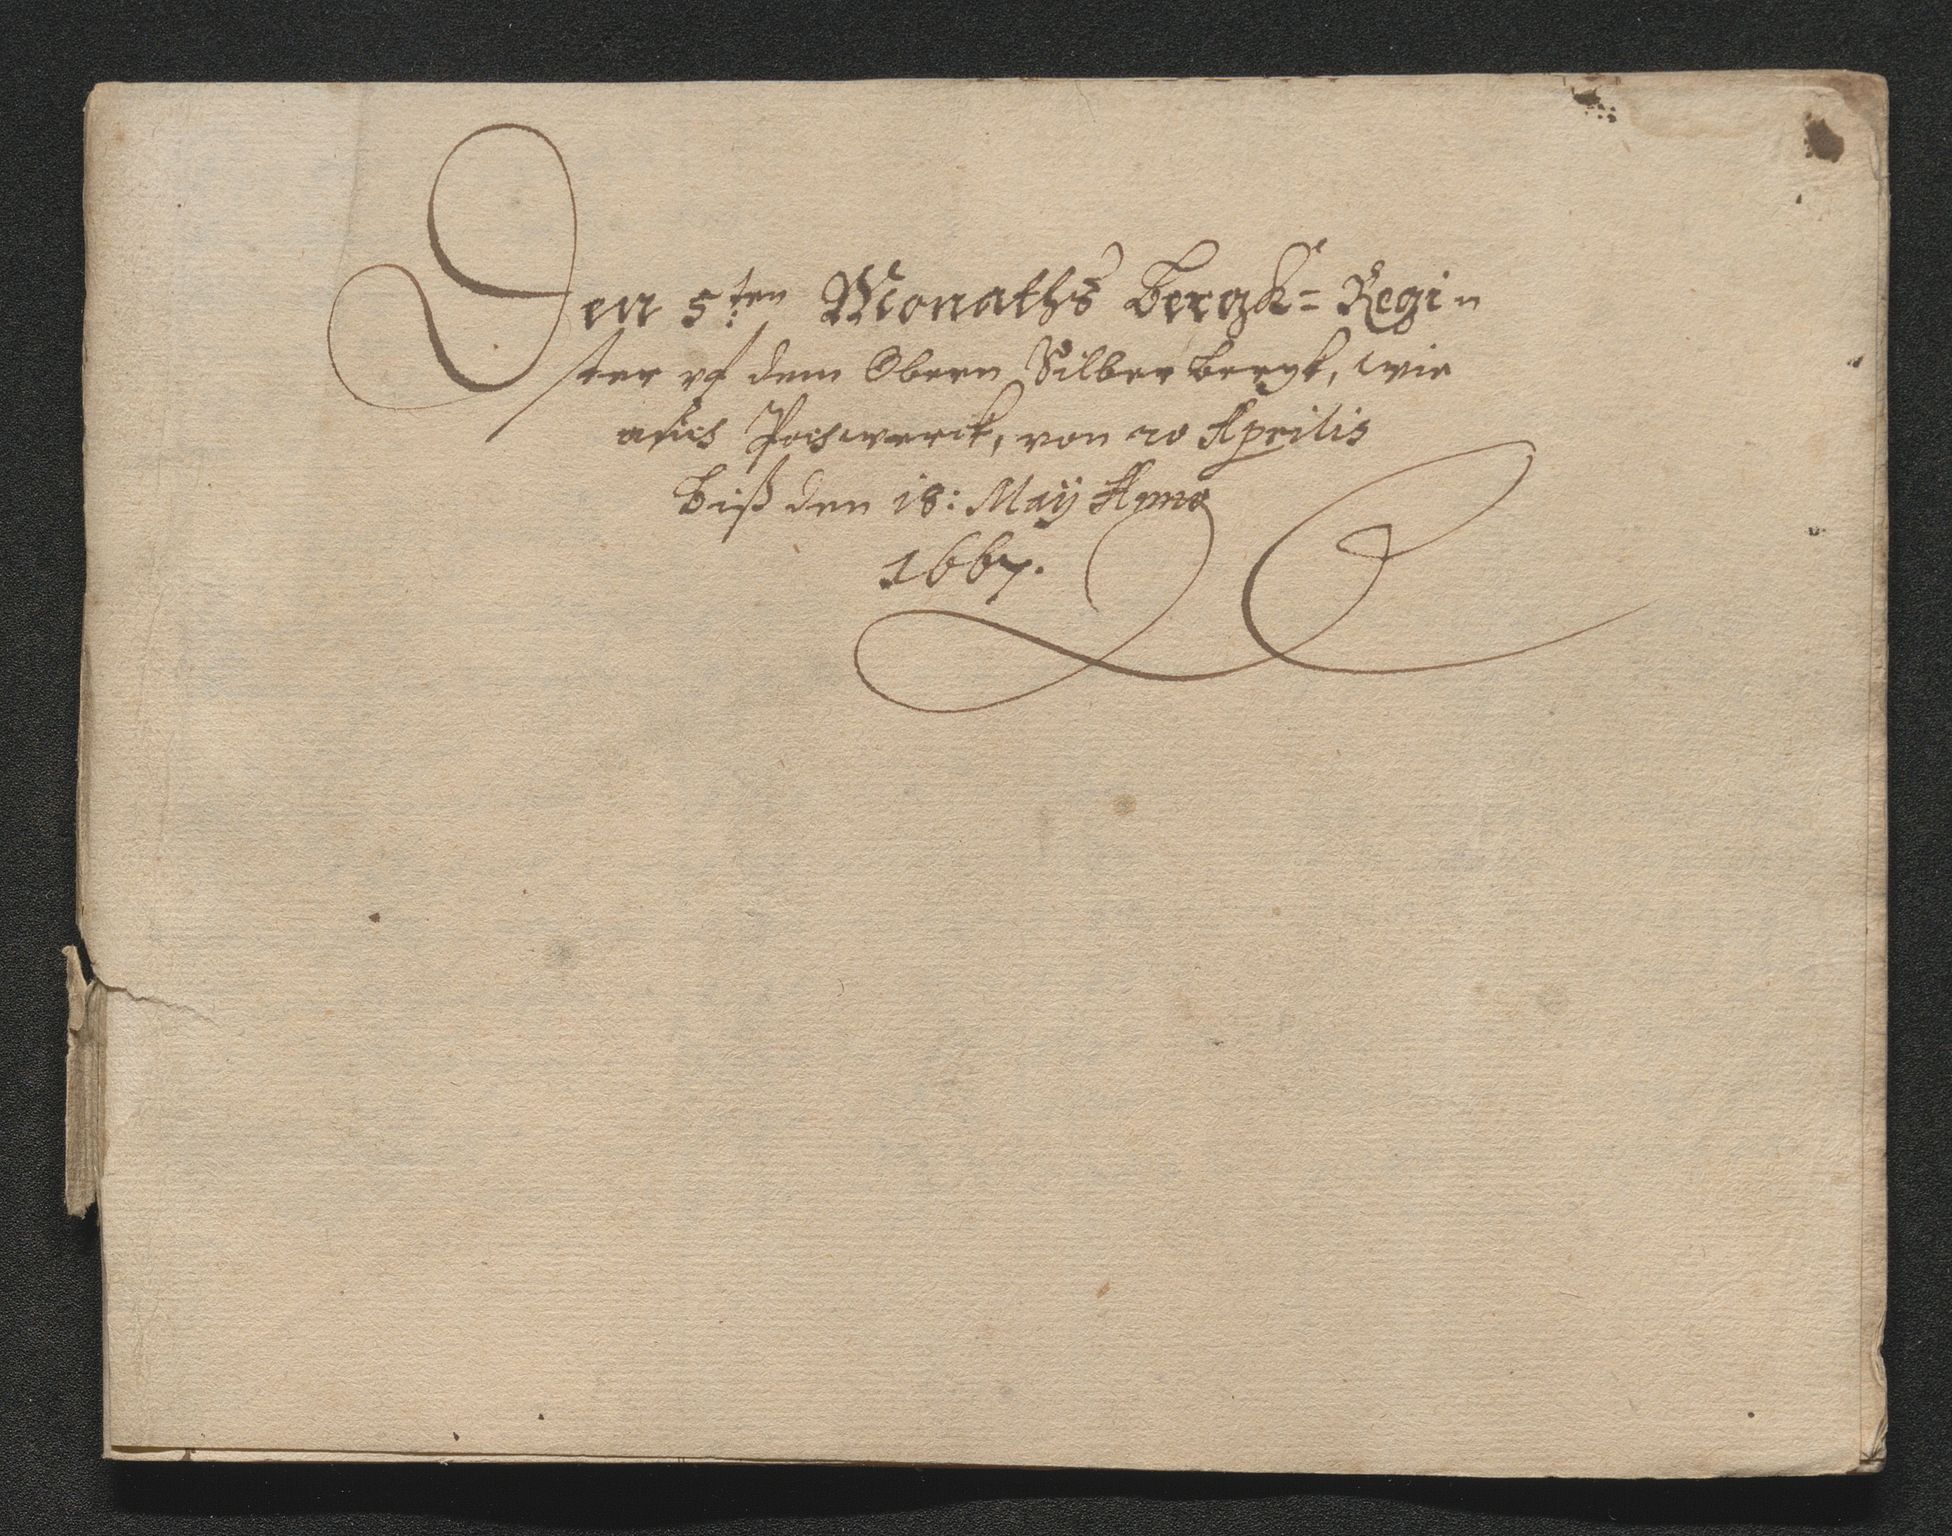 Den 5:ten Monaths Bergk= Regi=
ster vf dem Obern Silberbergk, wie
auch Pochwerck, von 20 Aprilis
biß den 18: Maÿ Anno
1667.